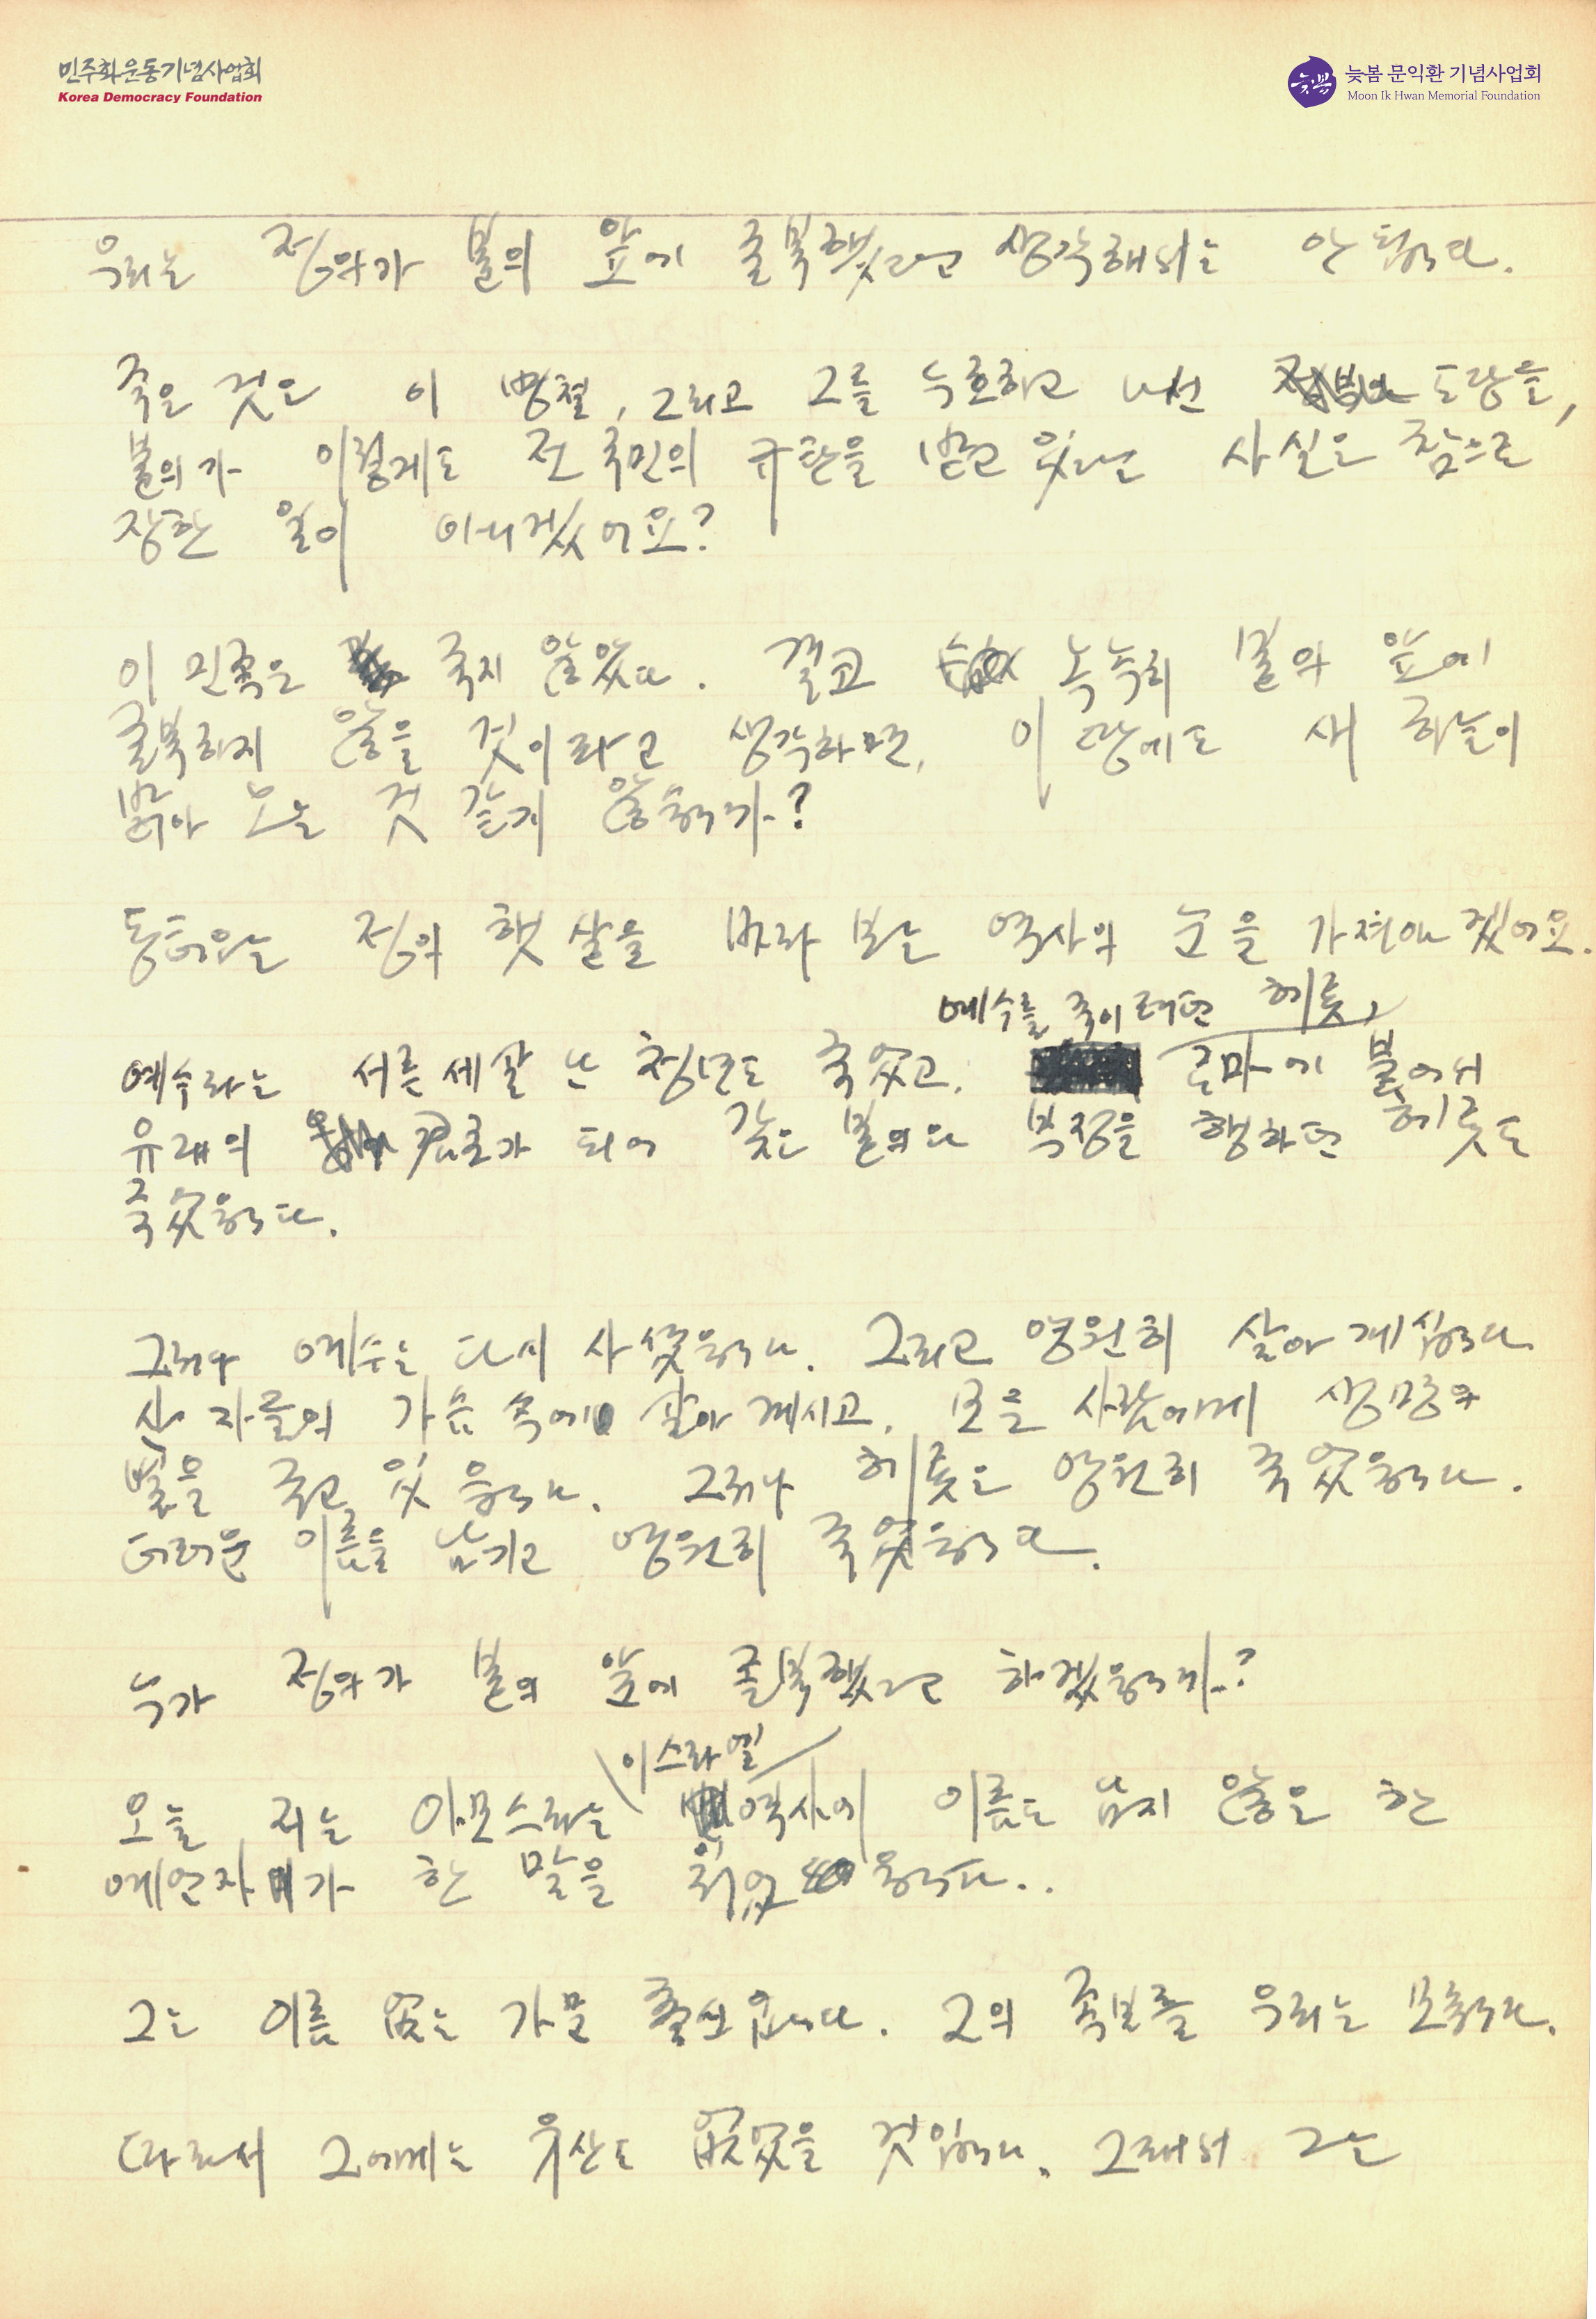 민주화운동기념사업회
Korea Democracy Foundation
늦봄
늦봄 문익환 기념사업회
Moon Ik Hwan Memorial Foundation
우리는 정의가 불의 앞에 굴복했다고 생각해서는 안 됩니다.
죽은 것은 이 명철, 그리고 그를 누호하고 나선 도당들,
불의가 이렇게도 전 국민의 규탄을 받고 있다는 사실은 참으로
장한 일이 아니겠어요?
이 민족은 죽지 않았다. 결코 녹녹히 불의 앞에
굴복하지 않을 것이라고 생각하면, 이 땅에도 새 하늘이
밝아 오는 것 같지 않습니까?
동터오는 정의 햇살을 바라 보는 역사의 눈을 가져야겠어요.
예수를 죽이려던 헤롯,
예수라는 서른세살 난 청년도 죽었고, 로마에 붙어서
유대의 가 되어 갖은 불의와 부정을 행하던 헤롯도
죽었습니다.
그러나 예수는 다시 사셨습니다. 그리고 영원히 살아 계십니다.
산 자들의 가슴 속에 살아 계시고, 모든 사람에게 생명의
빛을 주고 있습니다. 그러나 헤롯은 영원히 죽었습니다.
더러운 이름을 남기고 영원히 죽었습니다.
누가 정의가 불의 앞에 굴복했다고 하겠습니까?
이스라엘
오늘 저는 아모스라는 역사에 이름도 남지 않은 한
예언자가 한 말을 읽었습니다..
그는 이름 없는 가문 출신입니다. 그의 족보를 우리는 모릅니다.
따라서 그에게는 유산도 없었을 것입니다. 그래서 그는